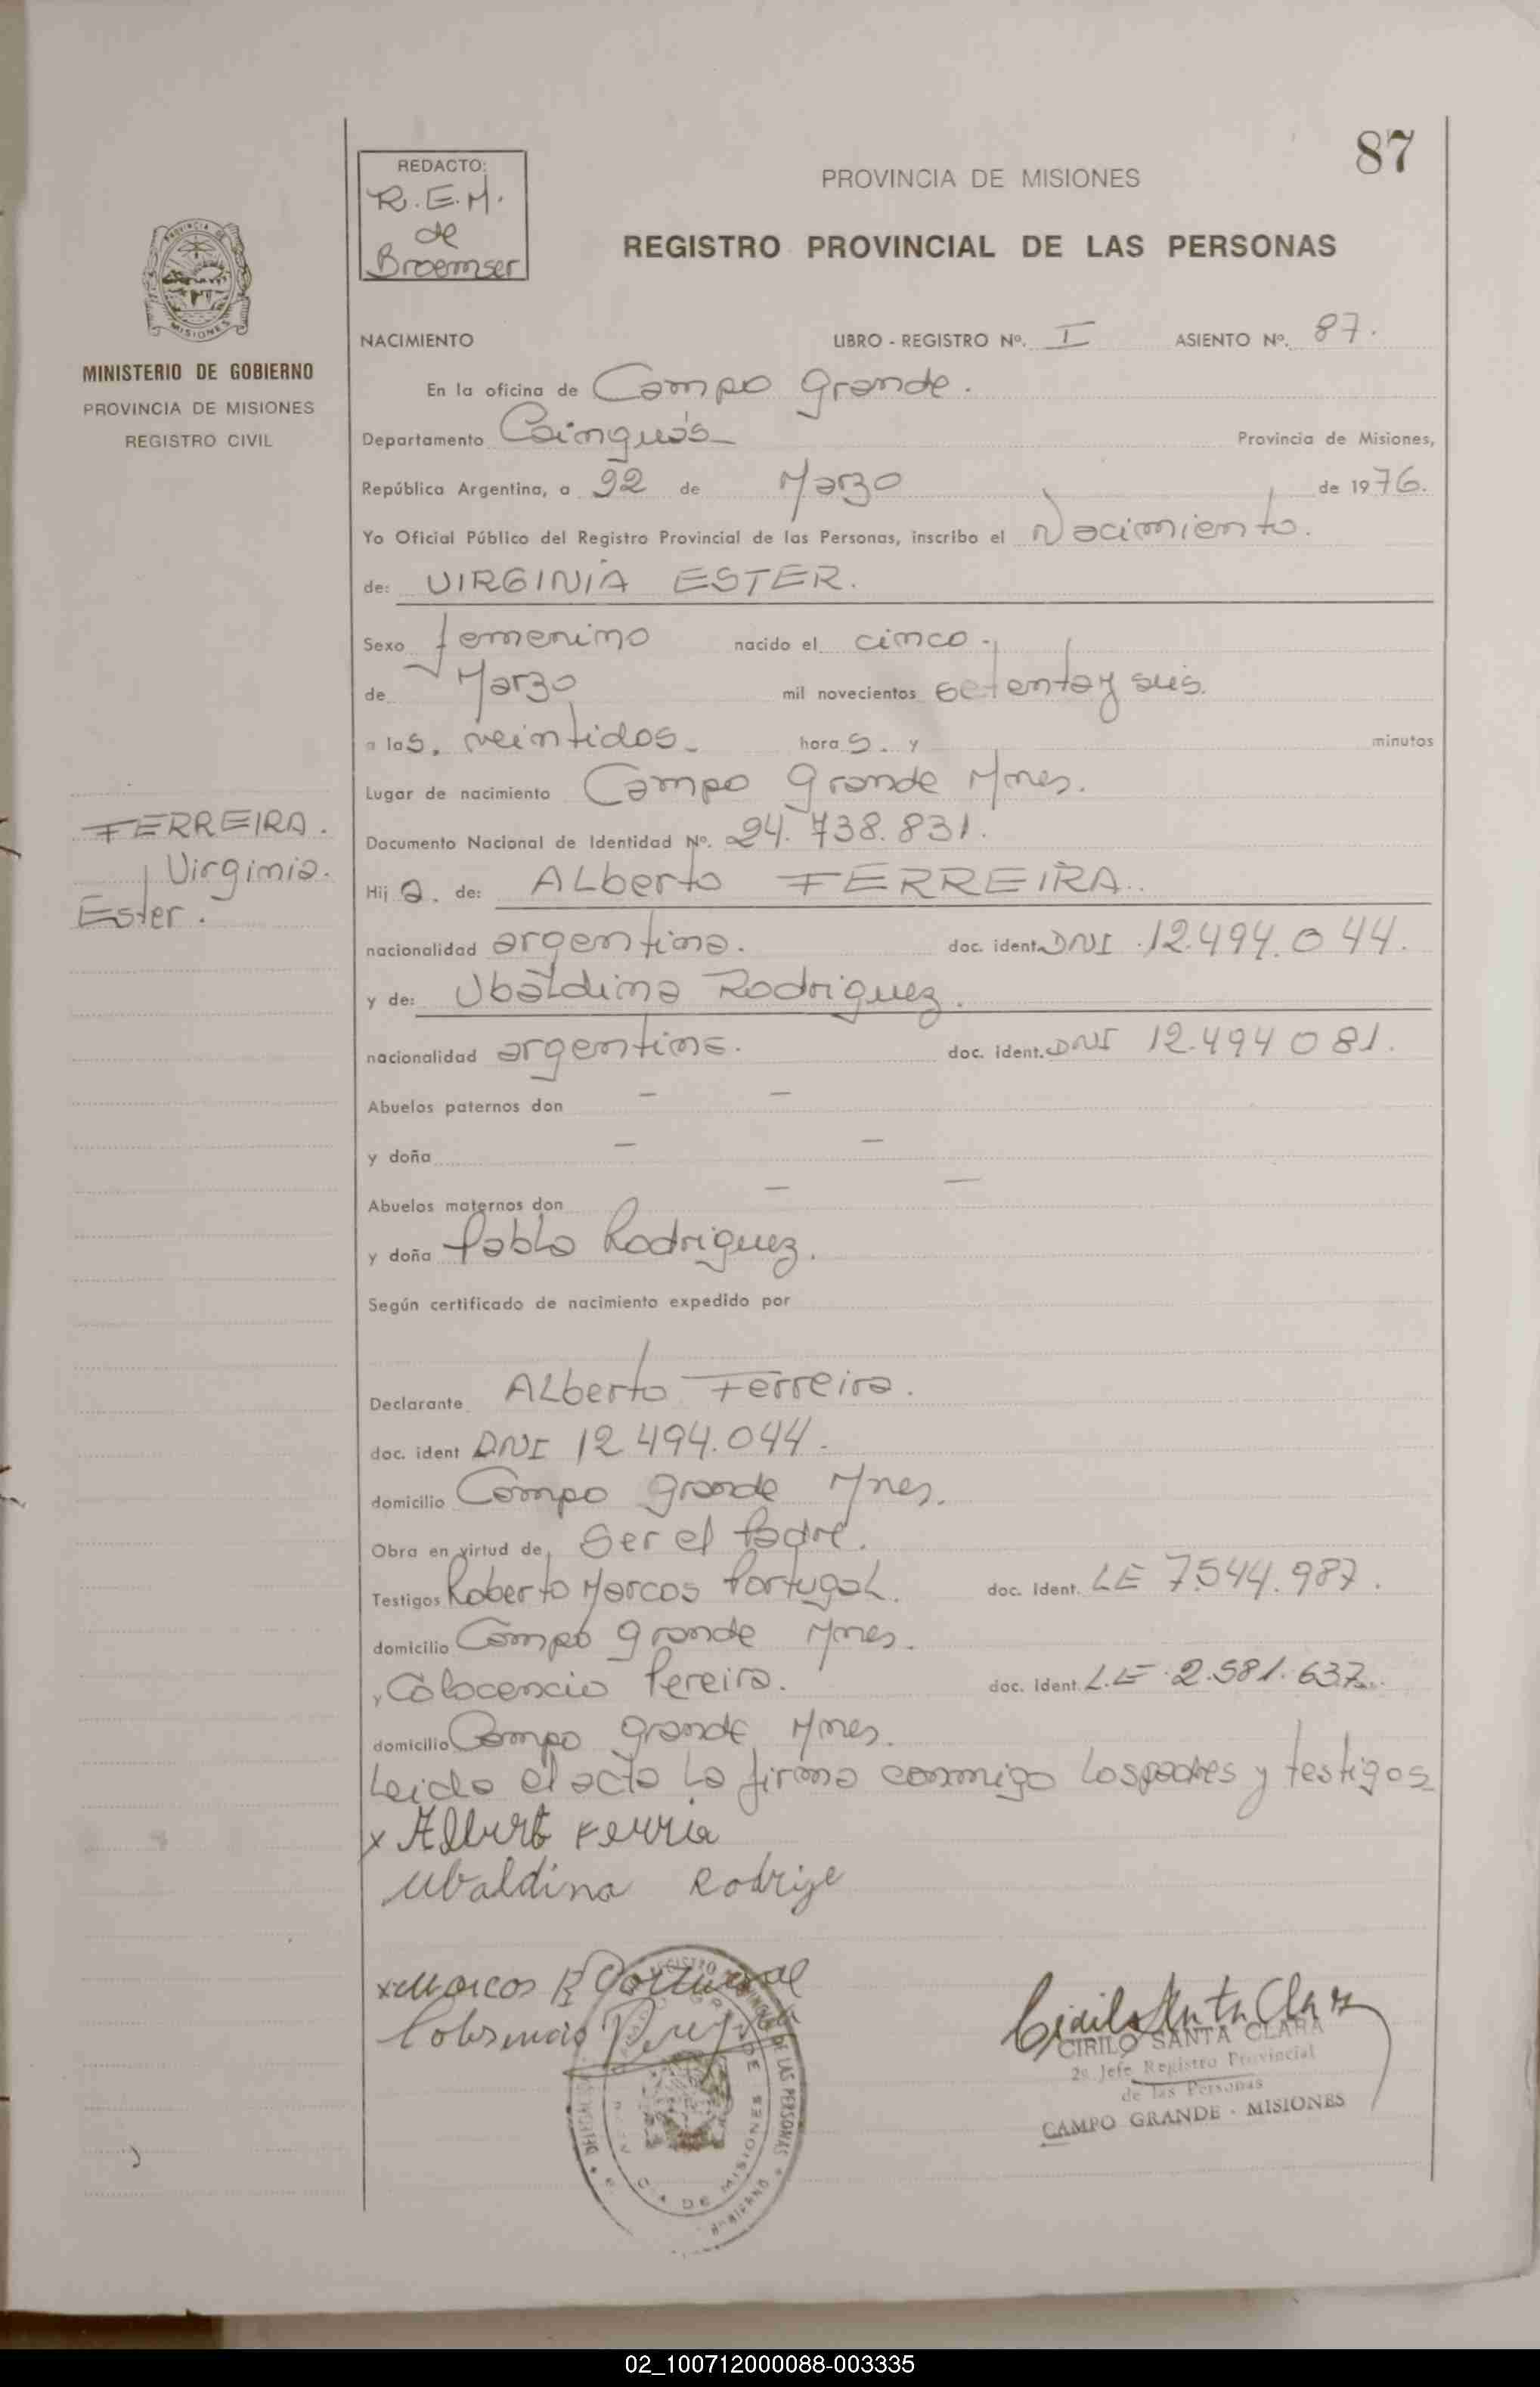 87
REDACTO:
R.E.M.
de
Broemser
PROVINCIA DE MISIONES
REGISTRO PROVINCIAL DE LAS PERSONAS
MINISTERIO DE GOBIERNO
PROVINCIA DE MISIONES
REGISTRO CIVIL
NACIMIENTO LIBRO - REGISTRO Nº. I ASIENTO Nº. 87.
En la oficina de Campo Grande.
Departamento Cainguás Provincia de Misiones,
República Argentina, a 22 de Marzo de 1976.
Yo Oficial Público del Registro Provincial de las Personas, inscribo el Nacimiento.
de: VIRGINIA ESTER.
Sexo femenino nacido el cinco -
de Marzo mil novecientos setenta y seis.
a las, veintidos - horas. y minutos
Lugar de nacimiento Campo Grande Mnes.
Documento Nacional de Identidad Nº. 24.738.831.
FERREIRA.
Virginia.
Ester.
Hija. de: ALberto FERREIRA.
nacionalidad argentina. doc. ident. DNI 12.494.044.
y de: Ubaldina Rodriguez.
nacionalidad argentina. doc. ident. DNI 12.494 081.
Abuelos paternos don - -
y doña - -
Abuelos maternos don - -
y doña Pablo Rodriguez.
Según certificado de nacimiento expedido por
Declarante ALberto Ferreira.
doc. ident DNI 12.494.044.
domicilio Campo Grande Mnes.
Obra en virtud de, Ser el Padre.
Testigos Roberto Marcos Portugal. doc. ident. LE 7.544.987.
domicilio Campo Grande Mnes.
, Colocencio Pereira. doc. ident. L.E. 2.581.637.
domicilio Campo Grande Mnes.
Leida el acta La firma conmigo Los padres y testigos
x Albert Ferria
Ubaldina Rodrige
x Marcos R Portugal
Cirilo Santa Clara
CIRILO SANTA CLARA
2º Jefe Registro Provincial
de las Personas
CAMPO GRANDE - MISIONES
02_100712000088-003335